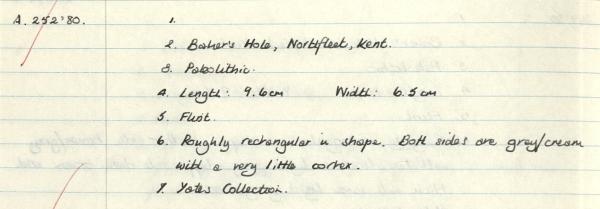 A. 252'80. 1.
2. Baker's Hole, Northfleet, Kent.
3. Paleolithic.
4. Length: 9.6cm Width: 6.5cm
5. Flint.
6. Roughly rectangular in shape. Both sides are grey/cream
with a very little cortex.
7. Yates Collection.